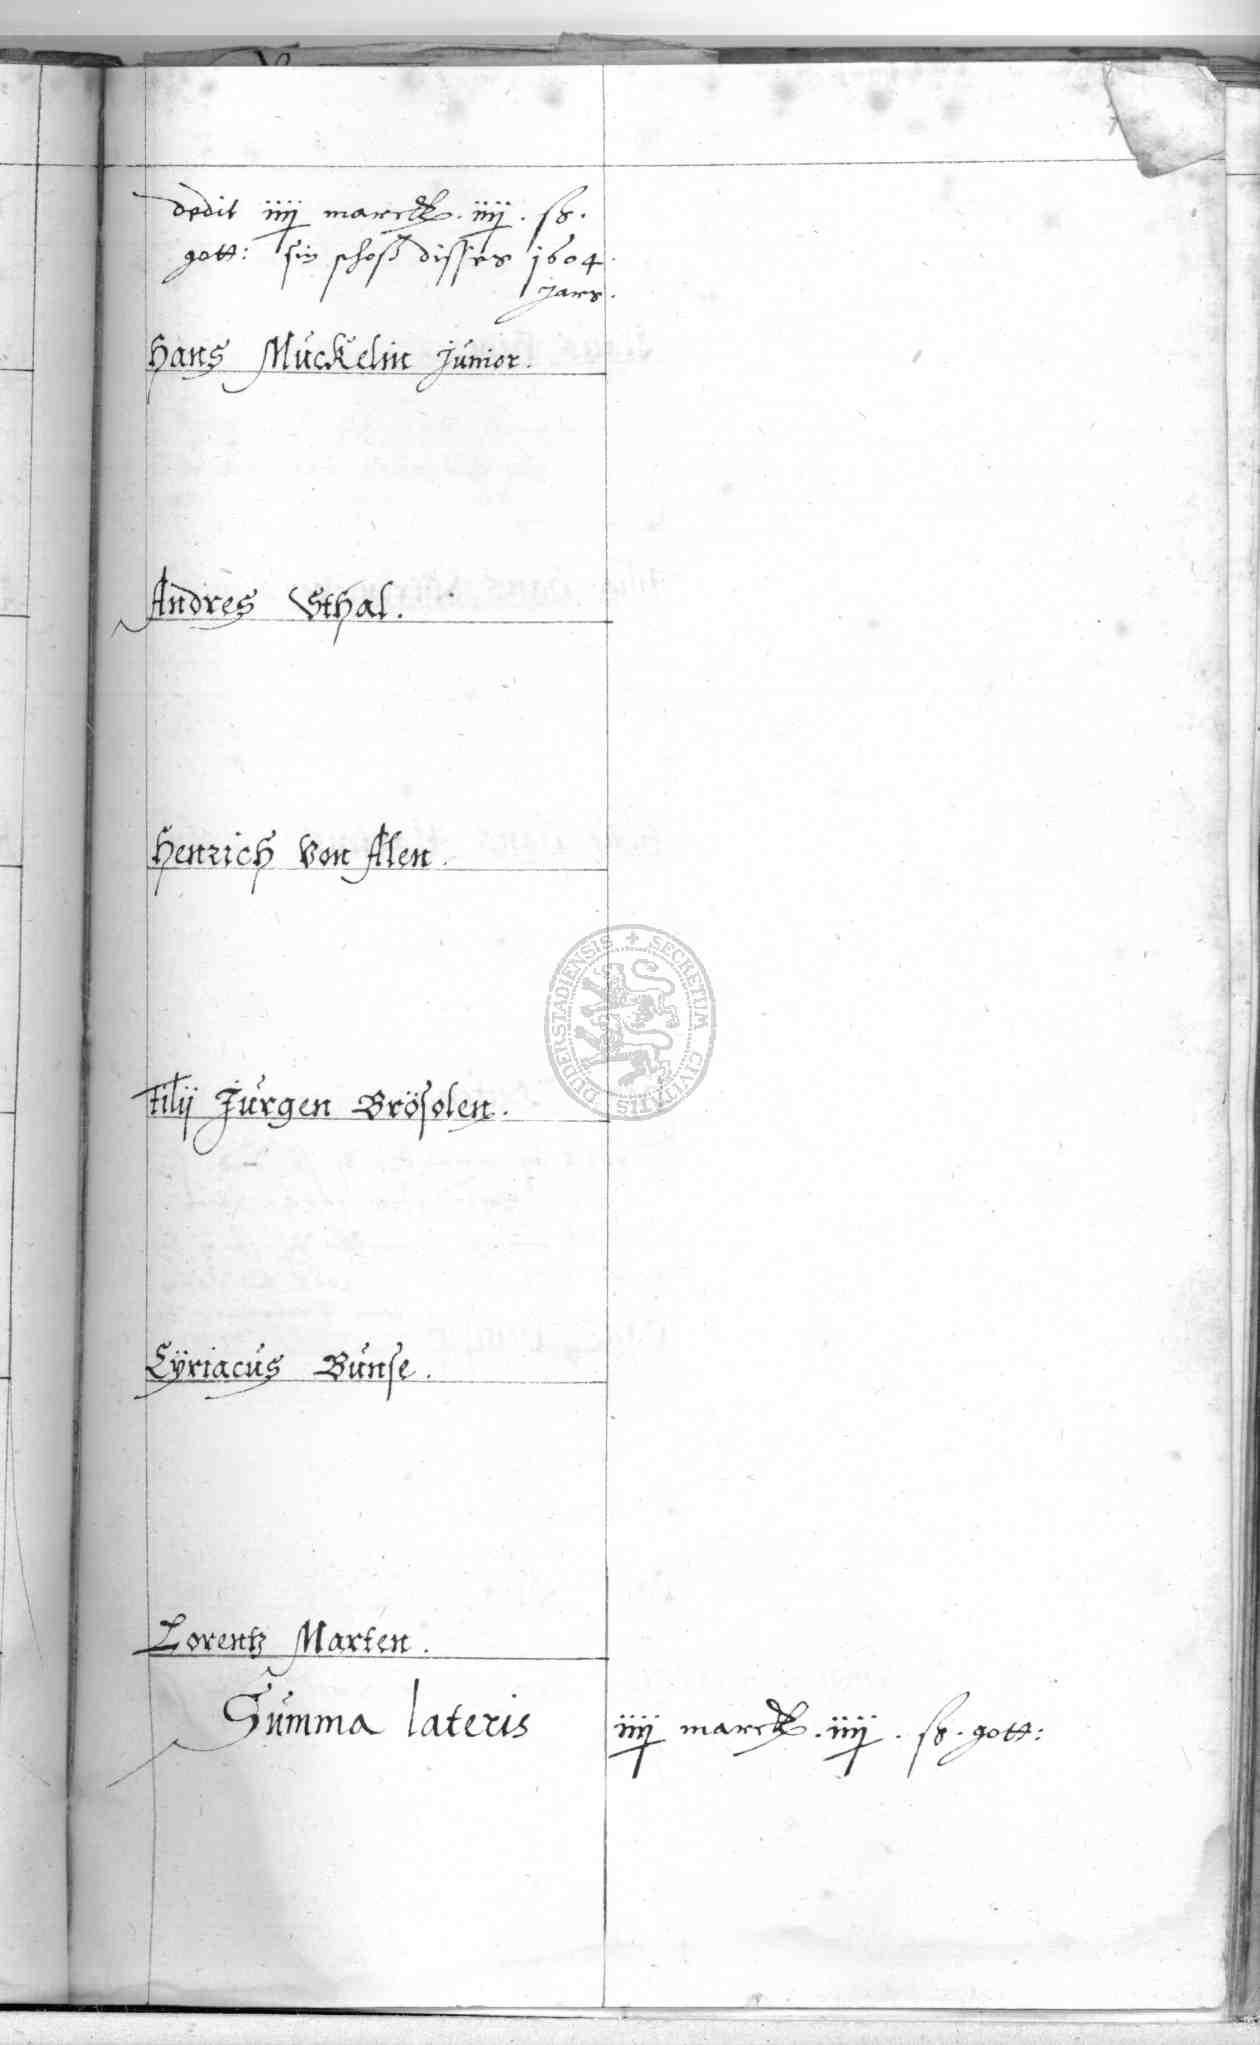 dedit iiij marck. iiij. ß.
gott: sin schoß disses 1604
jars.
Hans Mückelin Júnior.
Andres Sthal.
Henrich Von Alen.
filij Júrgen Brösolen.
Cÿriacús Búnse.
Lorentz Marten.
Súmma lateris iiij marck. iiij. ß. gott:
SECRETUM CIVITATIS DUDERSTADIENSIS